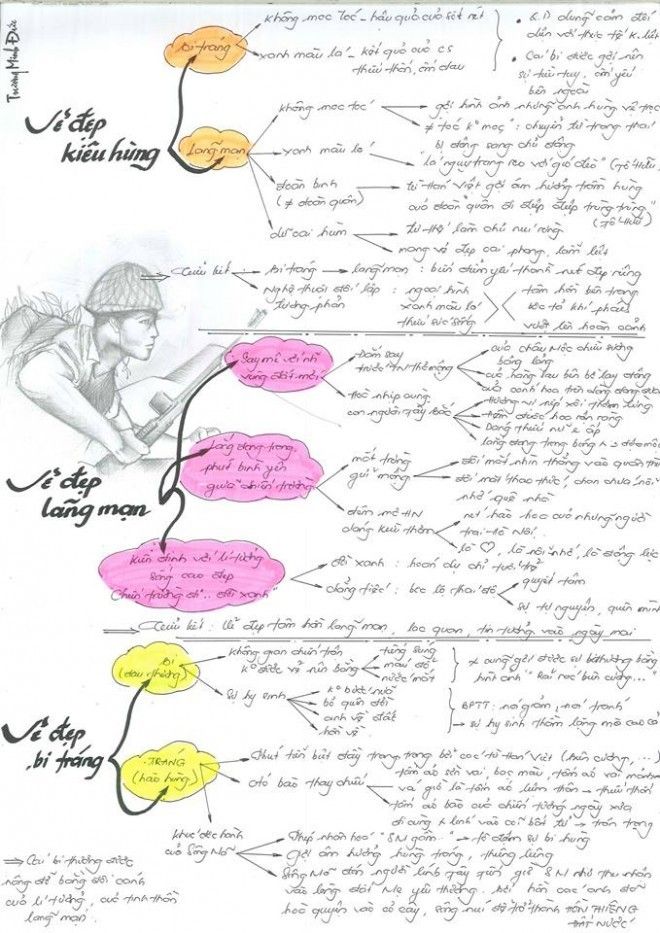 Trương Minh Đức
Vẻ đẹp
kiêu hùng
Bi tráng
không mọc tóc - hậu quả của sốt rét
xanh màu lá - kết quả của cs
thiếu thốn, ốm đau
Q.D dũng cảm đối
diện với thực tế k.liệt
Cái bi được gợi nên
sự tiều tụy, ốm yếu
bên ngoài
Lãng mạn
không mọc tóc
gợi hình ảnh những anh hùng vệ trọc
≠ tóc k° mọc": chuyển từ trạng thái
bị động sang chủ động
xanh màu lá
"lá ngụy trang reo với gió đèo" (Tố Hữu)
đoàn binh
(≠ đoàn quân)
từ Hán Việt gợi âm hưởng trầm hùng
của đoàn "quân đi điệp điệp trùng trùng"
(Tố Hữu)
dữ oai hùm
tư thế làm chủ núi rừng
mang vẻ đẹp oai phong, lẫm liệt
Tiểu kết:
Bi tráng
lãng mạn:
thành nét đẹp riêng
Nghệ thuật đối lập:
tương phản
ngoại hình
xanh màu lá
thiếu sức sống
tâm hồn bên trong
khí phách
vượt lên hoàn cảnh
Vẻ đẹp
lãng mạn
Say mê với n~
vùng đất mới
Đắm say
trước TN thơ mộng
của châu Mộc chiều sương
bảng lảng
Hoà nhịp cùng
con người Tây Bắc
hương vị nếp xôi thơm lừng
Dáng thiếu nữ e ấp
Lãng đãng trong
phút bình yên
giữa chiến trường
mắt trừng
gửi mộng
đôi mắt nhìn thẳng vào quân thù
đôi mắt thao thức, chan chứa nỗi
nhớ quê nhà
đêm mơ HN
dáng kiều thơm
nét hào hoa của những người
trai Hà Nội.
là ♡, là nỗi nhớ, là động lực
Kiên định với lí tưởng
sống cao đẹp
"Chiến trường đi.. đời xanh"
đời xanh: hoán dụ chỉ tuổi trẻ
chẳng tiếc: bộc lộ thái độ
quyết tâm
sự tự nguyện, quên mình
Tiểu kết: Vẻ đẹp tâm hồn lãng mạn, lạc quan, tin tưởng vào ngày mai
Vẻ đẹp
bi tráng
Bi
(đau thương)
Không gian chiến trận
k° được vẽ nên bằng
tiếng súng
máu đổ
nước mắt
≠ cũng gợi được sự bi thương bằng
hình ảnh "Rải rác biên cương..."
Sự hy sinh
k° bước nữa
bỏ quên đời
anh về đất
hồn về
BPTT: nói giảm, nói tránh
sự hy sinh thầm lặng mà cao cả
TRÁNG
(hào hùng)
Bút tấn bút đầy trang trọng bởi các từ Hán Việt (biên cương, ...)
áo bào thay chiếu
tấm áo sờn vai, bạc màu, tấm áo vá mảnh
vá giờ là tấm áo liệm thân → thiếu thốn
tấm áo bào của chiến tướng ngày xưa
đi cùng ≠ lính vào cõi bất tử → trân trọng
Khúc độc hành
của Sông Mã
Phép nhân hoá "SM gầm.." → tô đậm sự bi hùng
Gợi âm hưởng hùng tráng, thiêng liêng
Sông Mã đón người lính tây tiến, giờ SM như thu nhận
vào lòng đất Mẹ yêu thương. Bởi hồn các anh đã
hoà quyện vào cỏ cây, sông núi để trở thành HỒN THIÊNG
ĐẤT NƯỚC
⇒ Cái bi thương được
nâng đỡ bằng đôi cánh
của lí tưởng, của tinh thần
lãng mạn.